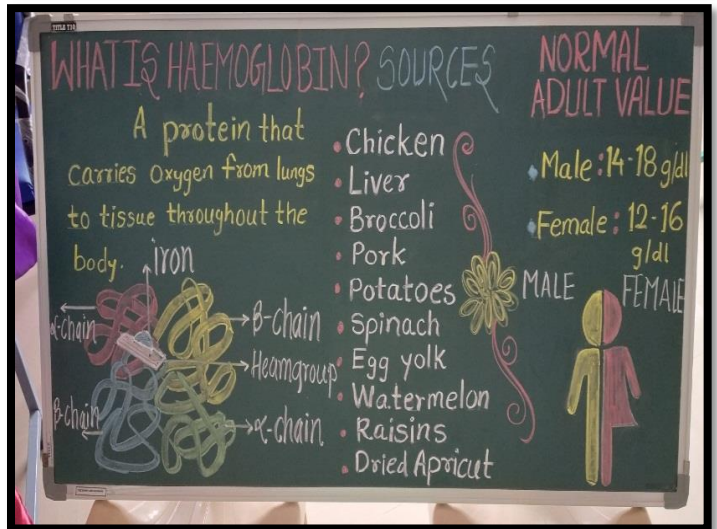 WHAT IS HAEMOGLOBIN?
A protein that
carries oxygen from lungs
to tissue throughout the
body.
iron
α-chain
β-chain
Heamgroup
β-chain
α-chain
SOURCES
Chicken
Liver
Broccoli
Pork
Potatoes
Spinach
Egg yolk
Watermelon
Raisins
Dried Apricut
NORMAL
ADULT VALUE
Male : 14-18 g/dl
Female : 12-16
g/dl
MALE FEMALE